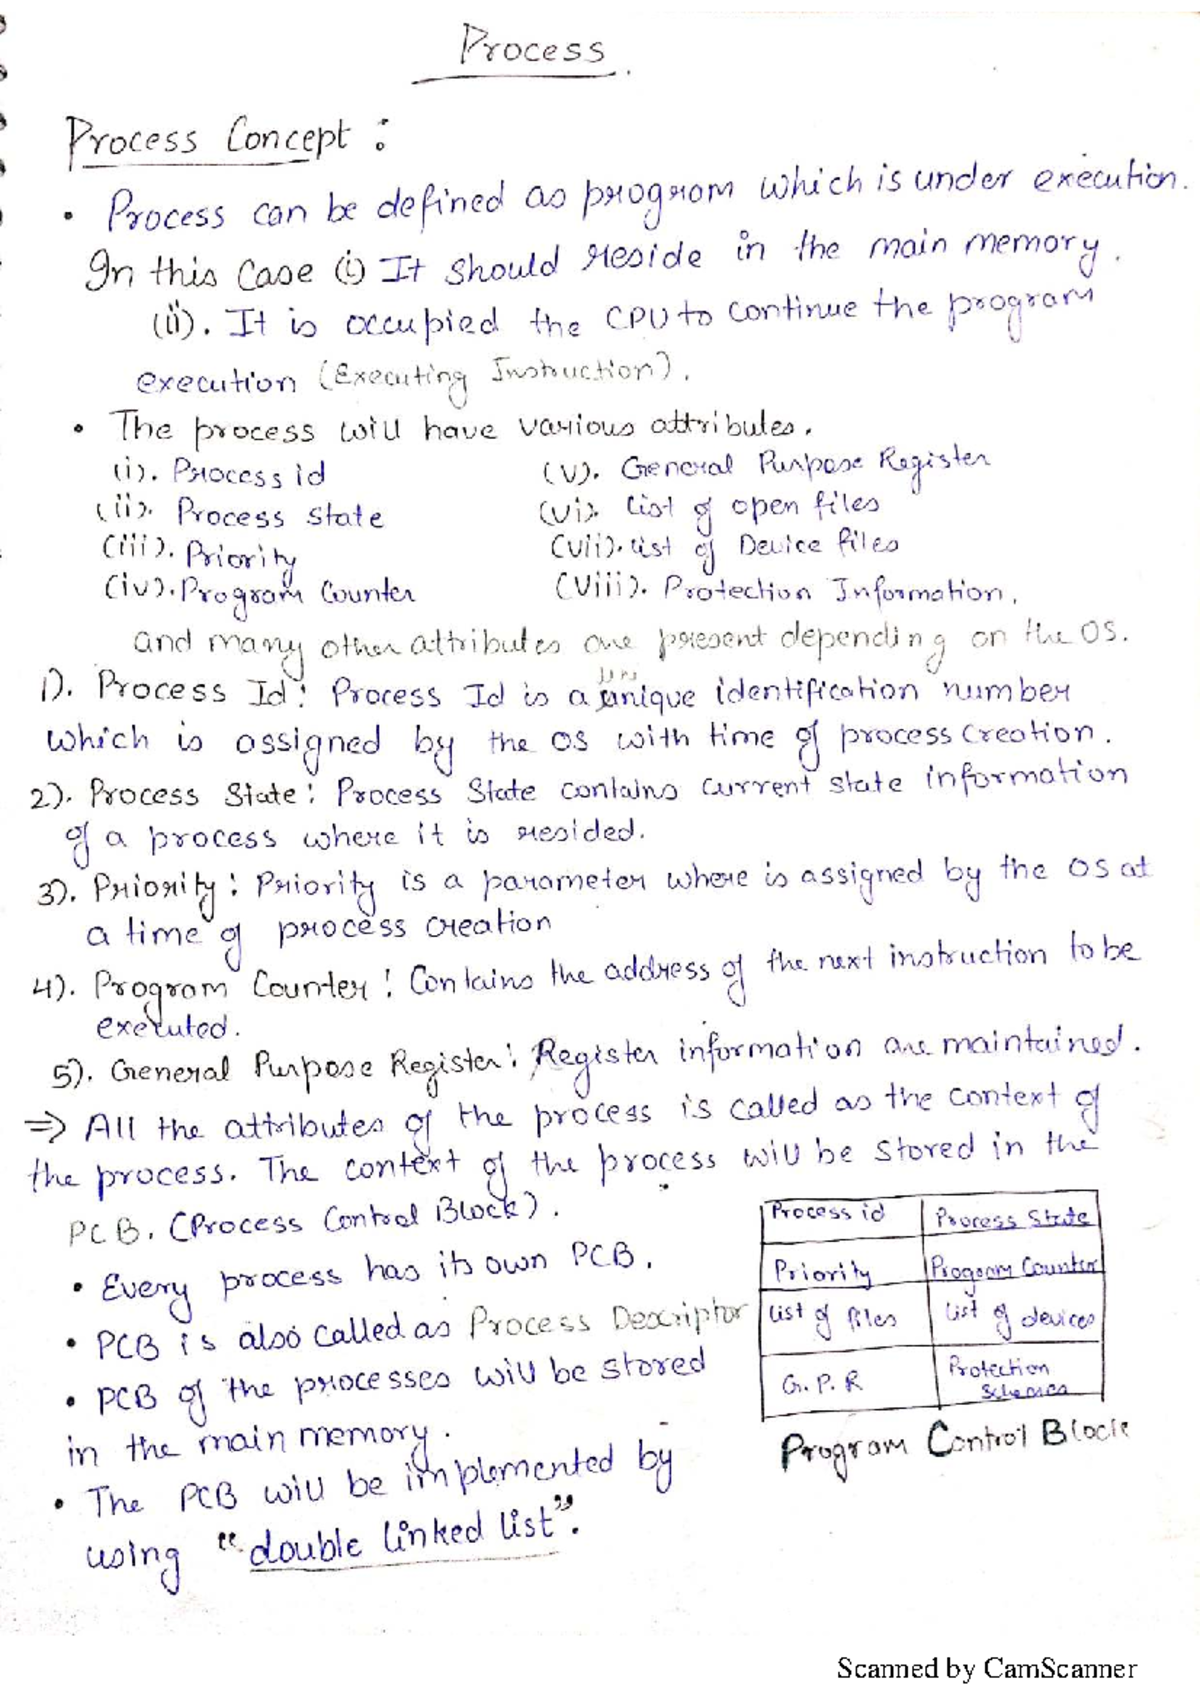 Process
Process Concept :
• Process can be defined as program which is under execution.
In this case (i) It should reside in the main memory.
(ii). It is occupied the CPU to continue the program
execution (Executing Instruction).
• The process will have various attributes.
(i). Process id (v). General Purpose Register
(ii). Process state (vi). List of open files
(iii). Priority (vii). list of Device files
(iv). Program Counter (viii). Protection Information.
and many other attributes are present depending on the OS.
1). Process Id : Process Id is a unique identification number
which is assigned by the OS with time of process creation.
2). Process State : Process State contains current state information
of a process where it is resided.
3). Priority : Priority is a parameter where is assigned by the OS at
a time of process creation
4). Program Counter : Contains the address of the next instruction to be
executed.
5). General Purpose Register : Register information are maintained.
⇒ All the attributes of the process is called as the context of
the process. The context of the process will be stored in the
PCB. (Process Control Block).
• Every process has its own PCB.
• PCB is also called as Process Descriptor
• PCB of the processes will be stored
in the main memory.
• The PCB will be implemented by
using "double linked list".
Process id Process State
Priority Progoam Counter
list of files list of devices
G.P.R Protection
Schemes
Program Control Block
Scanned by CamScanner